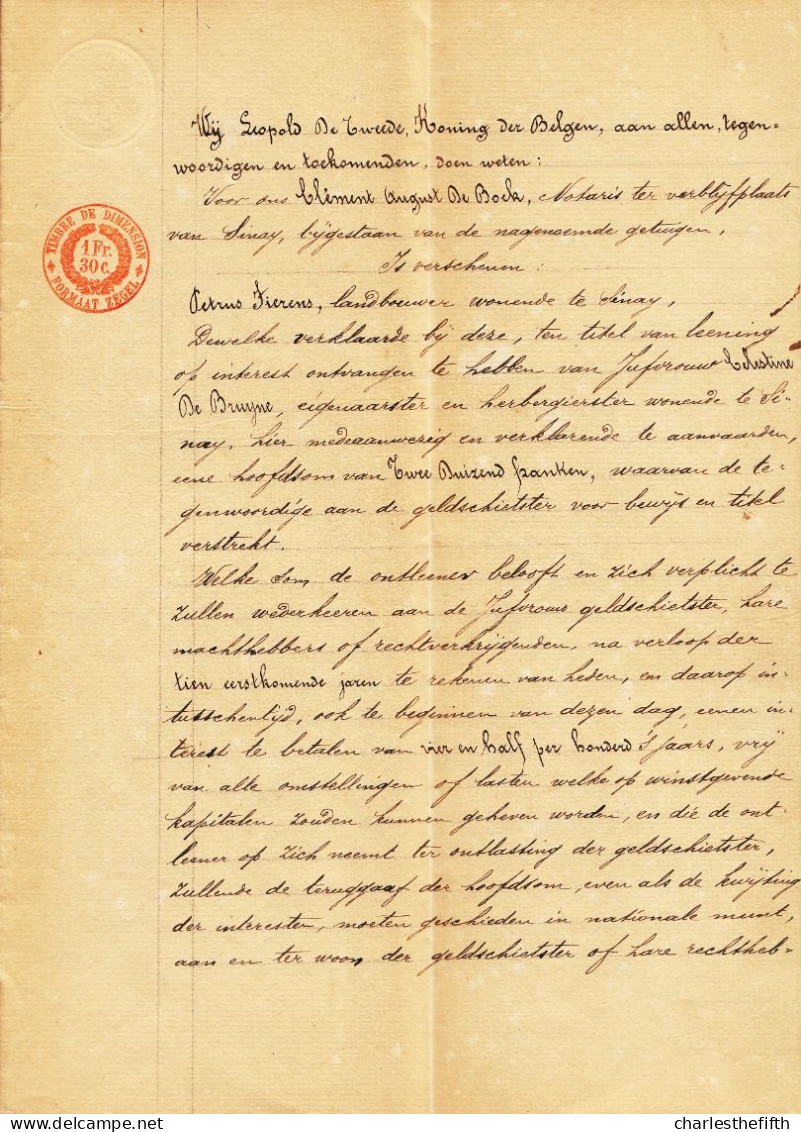 Wij Leopold De Tweede, Koning der Belgen, aan allen, tegen-
woordigen en toekomenden, doen weten:
Voor ons Clément August De Bock, Notaris ter verblijfplaats
van Sinay, bijgestaan van de nagenoemde getuigen,
Is verschenen:
TIMBRE DE DIMENSION
1 Fr.
30 c.
FORMAAT ZEGEL
Petrus Fierens, landbouwer wonende te Sinay,
Dewelke verklaarde bij deze, ten titel van leening
op interest ontvangen te hebben van Jufvrouw Celestine
De Bruyne, eigenaarster en herbergierster wonende te Si-
nay, hier medeaanwezig en verklarende te aanvaarden,
eene hoofdsom van Twee Duizend franken, waarvan de te-
genwoordige aan de geldschietster voor bewijs en titel
verstrekt.
Welke som de ontleener belooft en zich verplicht te
zullen wederkeeren aan de Jufvrouw geldschietster, hare
machthebbers of rechtverkrijgenden, na verloop der
tien eerstkomende jaren te rekenen van heden, en daarop in-
tusschentijd, ook te beginnen van dezen dag, eenen in-
terest te betalen van vier en half per honderd 's jaars, vrij
van alle omstellingen of lasten welke op winstgevende
kapitalen zouden kunnen geheven worden, en die de ont-
leener op zich neemt ter ontlasting der geldschietster,
zullende de teruggaaf der hoofdsom, even als de kwijting
der interesten, moeten geschieden in nationale munt,
aan en ter woon der geldschietster of hare rechtheb-
www.delcampe.net
charlesthefifth